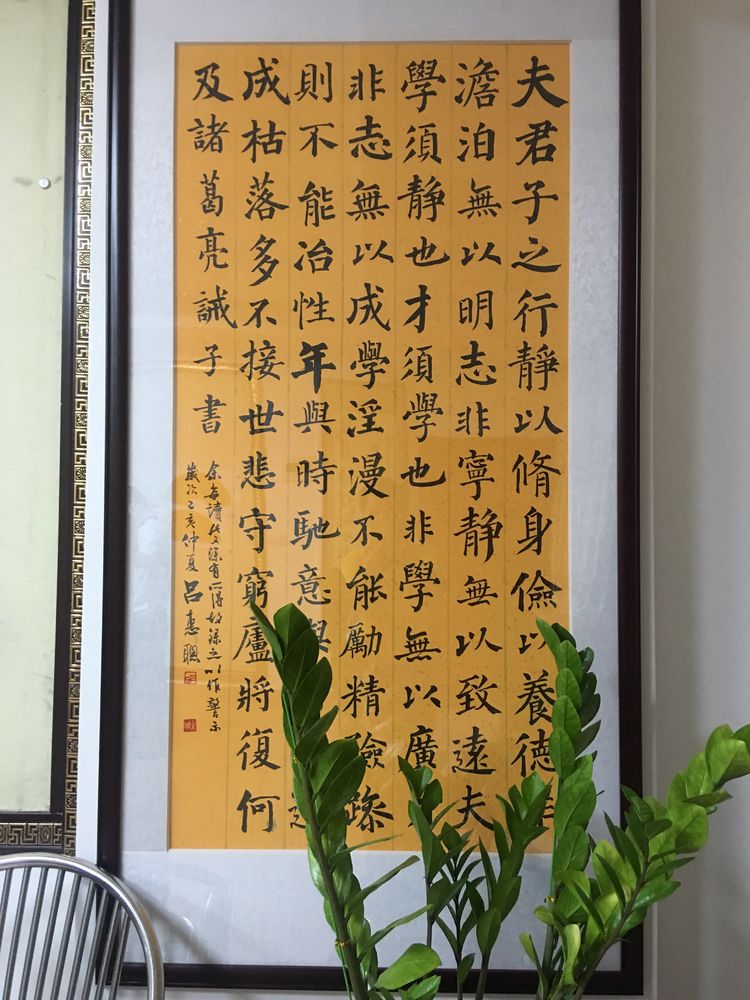 夫君子之行靜以脩身儉以養德非
澹泊無以明志非寧靜無以致遠夫
學須靜也才須學也非學無以廣
非志無以成學淫漫不能勵精險躁
則不能冶性年與時馳意與
成枯落多不接世悲守窮廬將復何
及諸葛亮誡子書
余每讀此文深有所得故錄之以作警示
歲次己亥仲夏呂惠聰